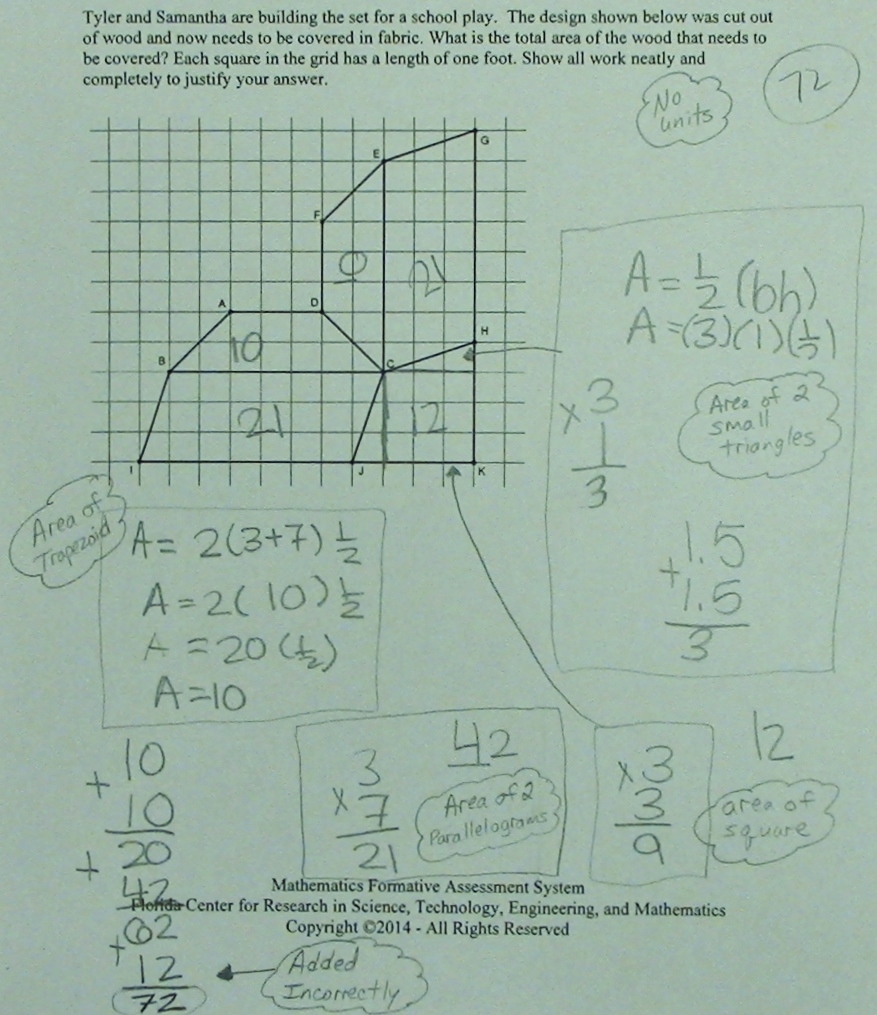 Tyler and Samantha are building the set for a school play. The design shown below was cut out
of wood and now needs to be covered in fabric. What is the total area of the wood that needs to
be covered? Each square in the grid has a length of one foot. Show all work neatly and
completely to justify your answer.
No
units
72
G
E
F
10
21
A
D
H
B
10
C
21
12
I
J
K
A = 1/2 (bh)
A = (3)(1)(1/2)
× 3
1
3
Area of 2
small
triangles
1.5
+ 1.5
3
Area of
Trapezoid
A = 2(3+7) 1/2
A = 2(10) 1/2
A = 20 (1/2)
A = 10
+ 10
10
+ 20
42
+ 62
12
72
Added
Incorrectly
3
× 7
21
42
Area of 2
Parallelograms
× 3
3
9
12
area of
square
Mathematics Formative Assessment System
Florida Center for Research in Science, Technology, Engineering, and Mathematics
Copyright ©2014 - All Rights Reserved